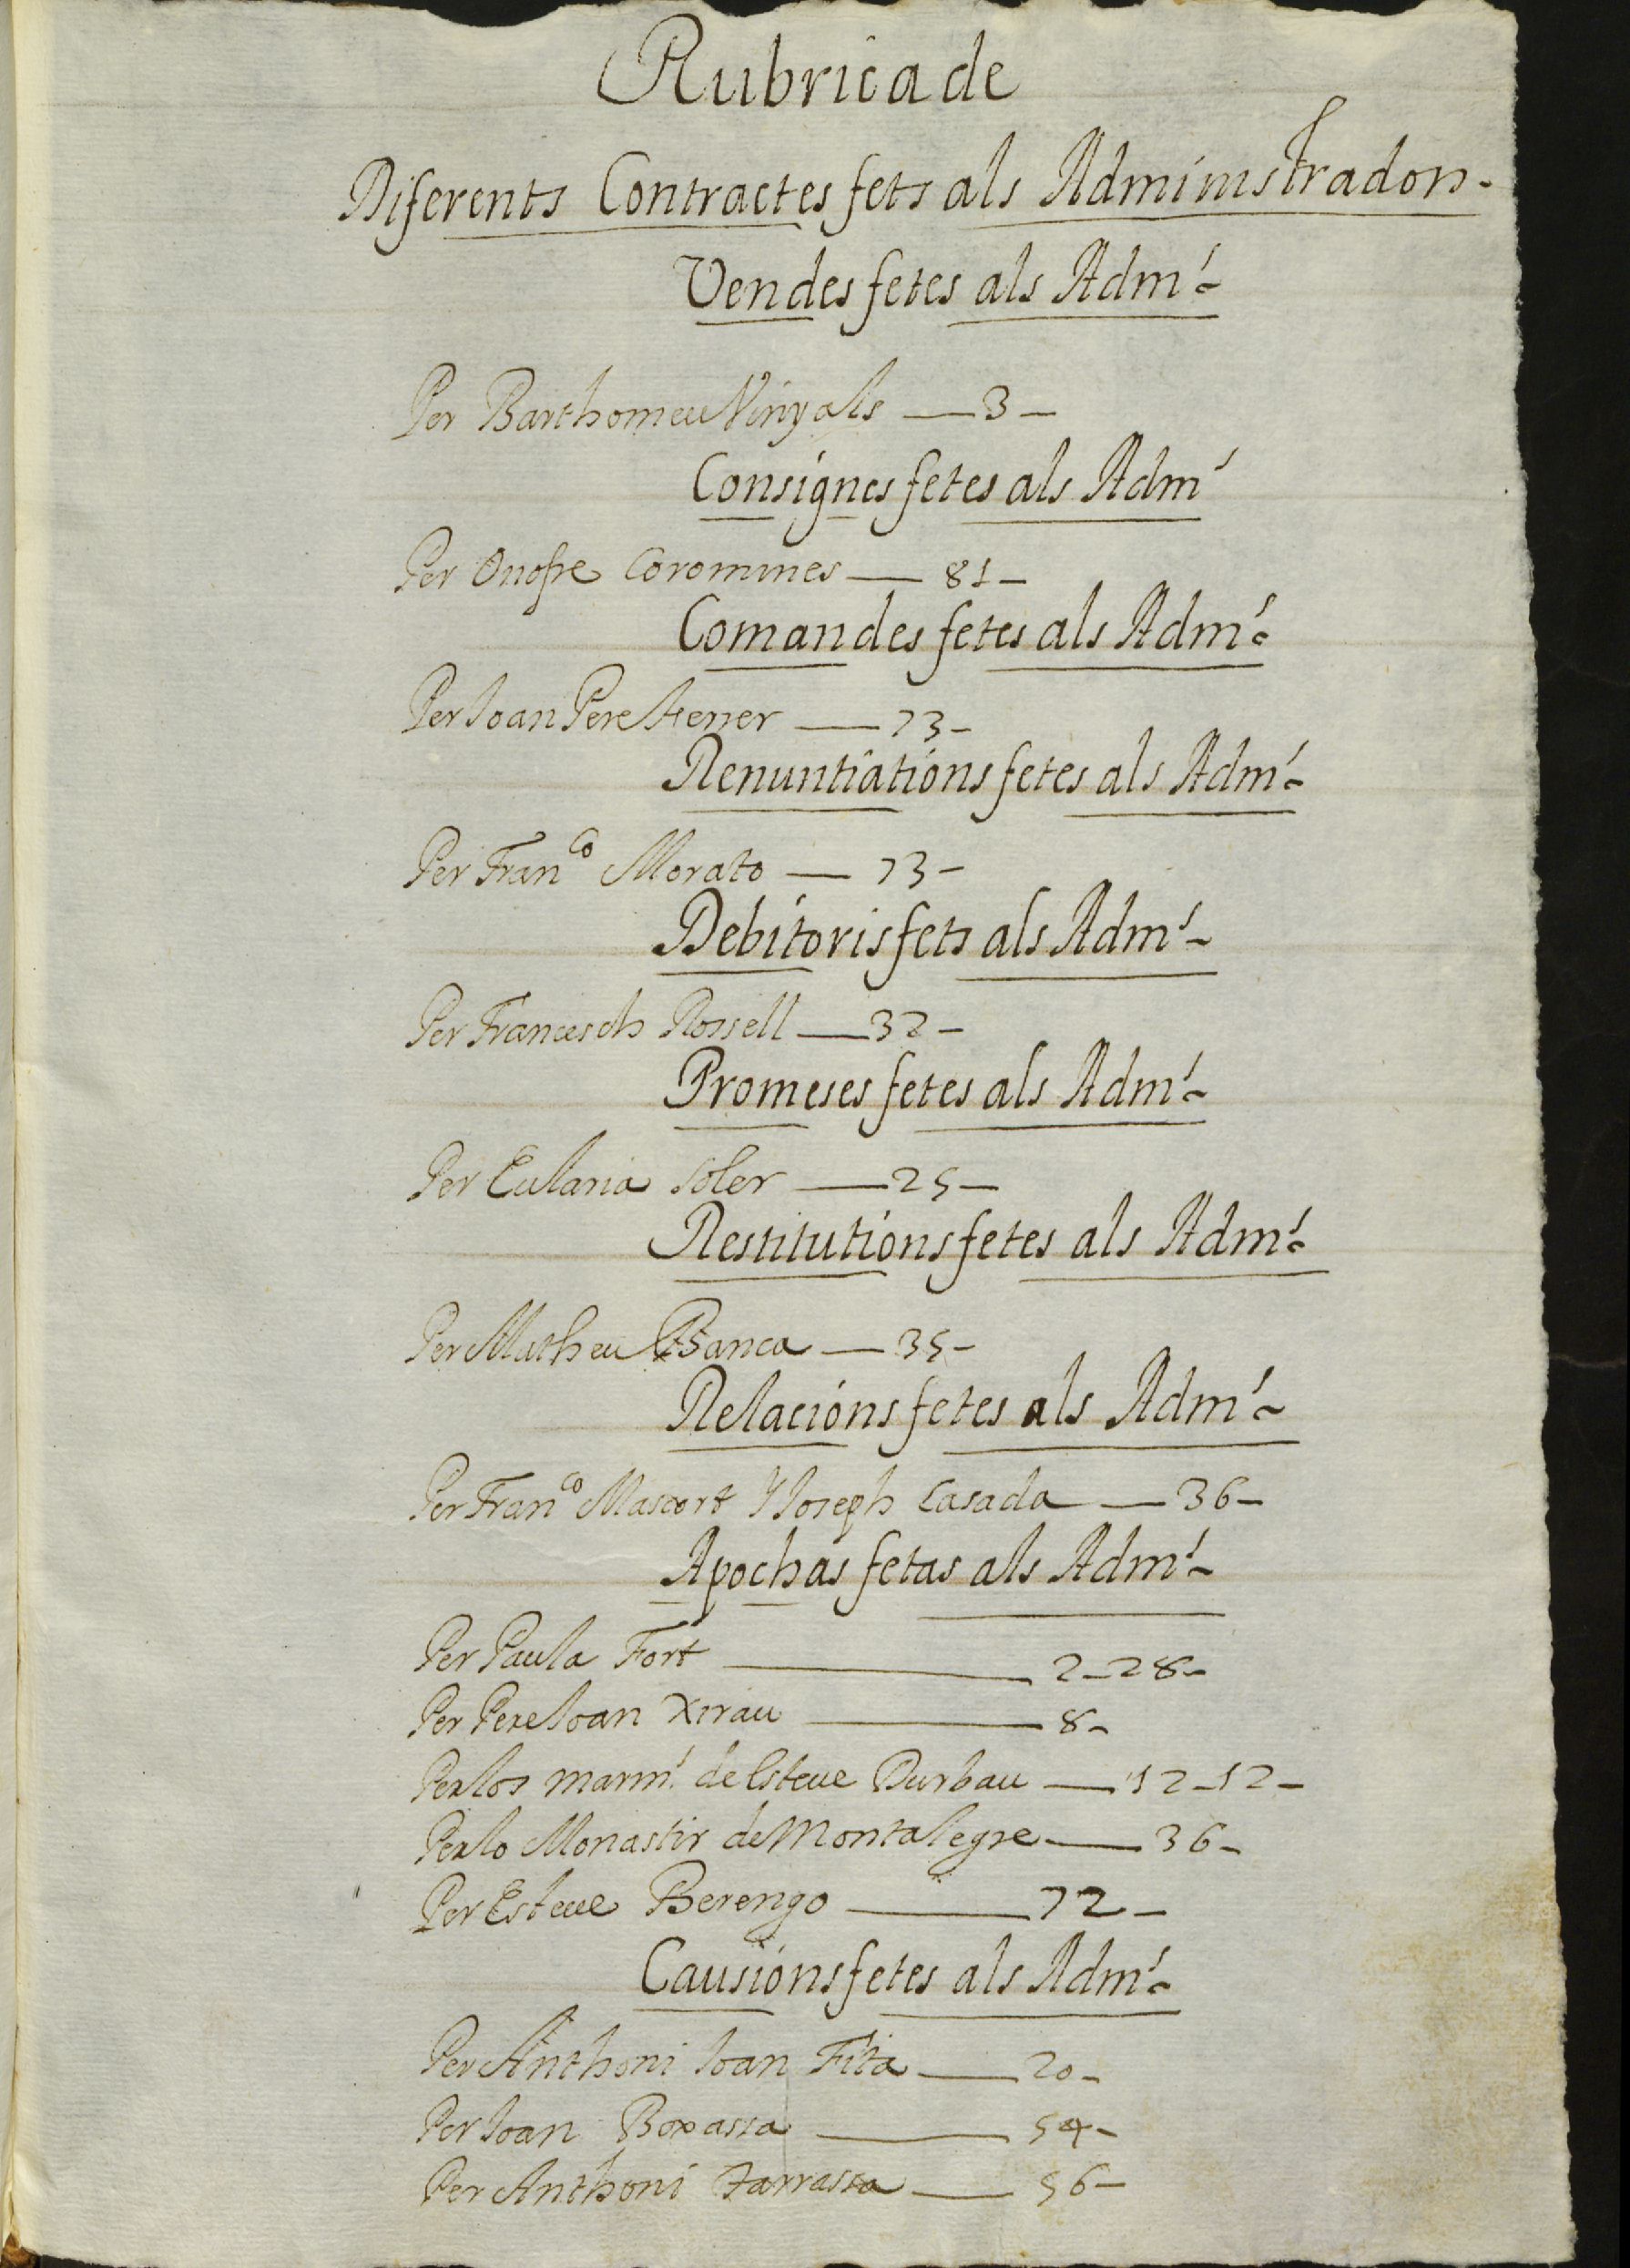 Rubrica de
Diferents Contractes fets als Administradors.
Vendes fetes als Adm.rs
Per Barthomeu Vinyals — 3 —
Consignes fetes als Adm.rs
Per Onofre Coromines — 81 —
Comandes fetes als Adm.rs
Per Joan Pere Ferrer — 73 —
Renuntiations fetes als Adm.rs
Per Fran.co Morato — 73 —
Debitoris fets als Adm.rs
Per Francesch Rossell — 32 —
Promeses fetes als Adm.rs
Per Eularia Soler — 25 —
Restitutions fetes als Adm.rs
Per Matheu Banca — 35 —
Relacions fetes als Adm.rs
Per Fran.co Mascort y Joseph Casada — 36 —
Apochas fetas als Adm.rs
Per Paula Fort — 2 — 28 —
Per Pere Joan Xirau — 8 —
Per los marm.rs de Esteve Durbau — 12 — 12 —
Per lo Monastir de Montalegre — 36 —
Per Esteve Berengo — 72 —
Causions fetes als Adm.rs
Per Anthoni Joan Fita — 20 —
Per Joan Boxassa — 54 —
Per Anthoni Tarrassa — 56 —